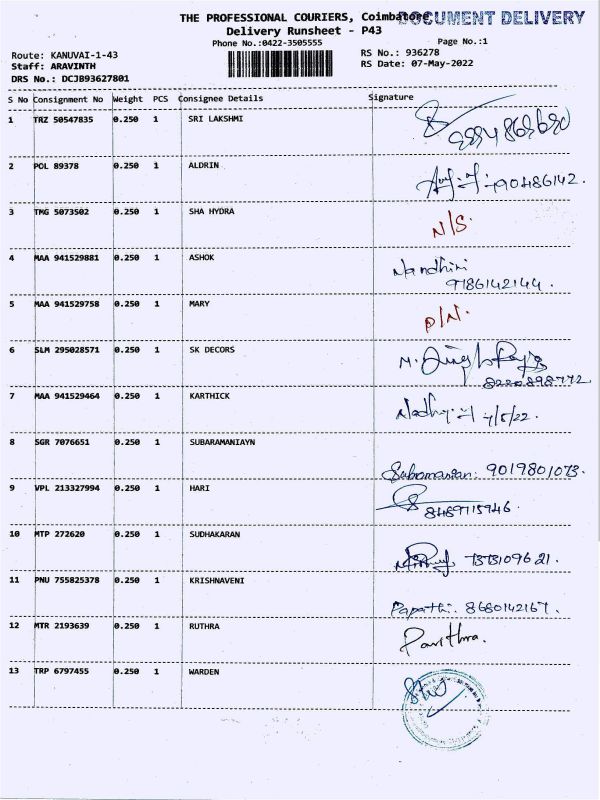 THE PROFESSIONAL COURIERS, Coimbatore
DOCUMENT DELIVERY
Delivery Runsheet - P43
Phone No.:0422-3505555
Page No.:1
Route: KANUVAI-1-43
RS No.: 936278
Staff: ARAVINTH
RS Date: 07-May-2022
DRS No.: DCJB93627801
S No Consignment No Weight PCS Consignee Details Signature
1 TRZ 50547835 0.250 1 SRI LAKSHMI
2 POL 89378 0.250 1 ALDRIN
3 TMG 5073502 0.250 1 SHA HYDRA
N/S.
4 MAA 941529881 0.250 1 ASHOK
Nandhini
9786142144.
5 MAA 941529758 0.250 1 MARY
D/N.
6 SLM 295028571 0.250 1 SK DECORS
8220898772
7 MAA 941529464 0.250 1 KARTHICK
7/5/22.
8 SGR 7076651 0.250 1 SUBARAMANIAYN
Subramanian. 9019801073.
9 VPL 213327994 0.250 1 HARI
8489715946.
10 MTP 272620 0.250 1 SUDHAKARAN
7373109621.
11 PNU 755825378 0.250 1 KRISHNAVENI
Papathi. 8680142167.
12 MTR 2193639 0.250 1 RUTHRA
Pavithra.
13 TRP 6797455 0.250 1 WARDEN